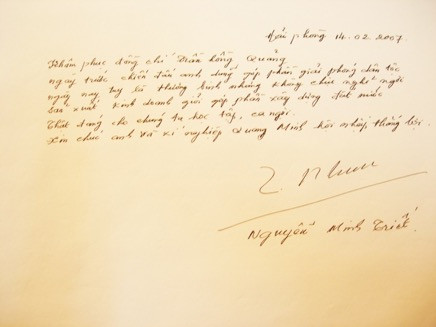 Hải phòng 14-02-2007
Khâm phục đồng chí Trần Hồng Quảng
ngày trước chiến đấn anh dũng góp phần giải phóng dân tộc
ngày nay tuy là thương binh nhưng không chịu nghỉ ngơi
sản xuất kinh doanh giỏi góp phần xây dựng đất nước
Thật đáng cho chúng ta học tập, ca ngợi.
Xin chúc anh và xí nghiệp Quang Minh hội nhập thắng lợi.
Nguyễn Minh Triết